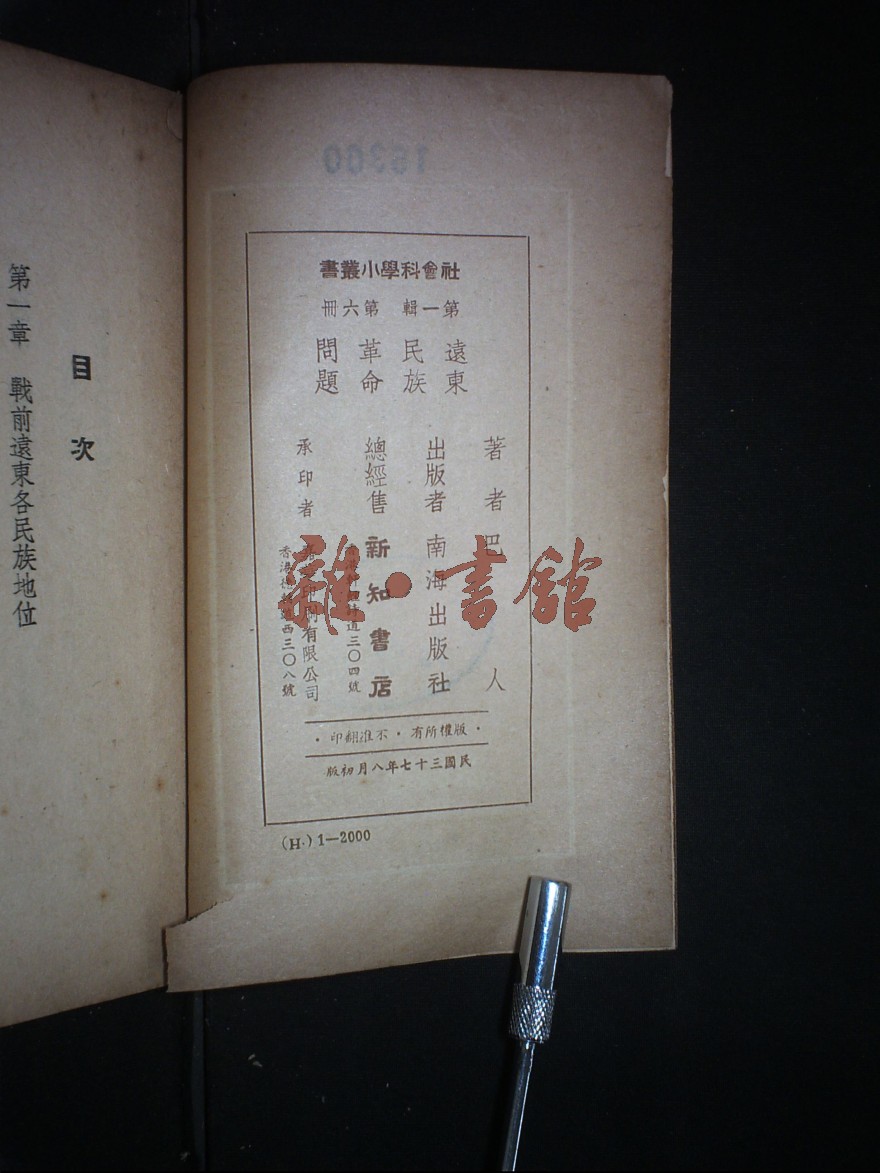 社會科學小叢書
第一輯 第六冊
遠東
民族
革命
問題
著者 巴人
出版者 南海出版社
總經售 新知書店
道三〇四號
承印者 印刷有限公司
香港 西三〇八號
・版權所有・不准翻印・
民國三十七年八月初版
(H.) 1—2000
目次
第一章 戰前遠東各民族地位
雜·書館